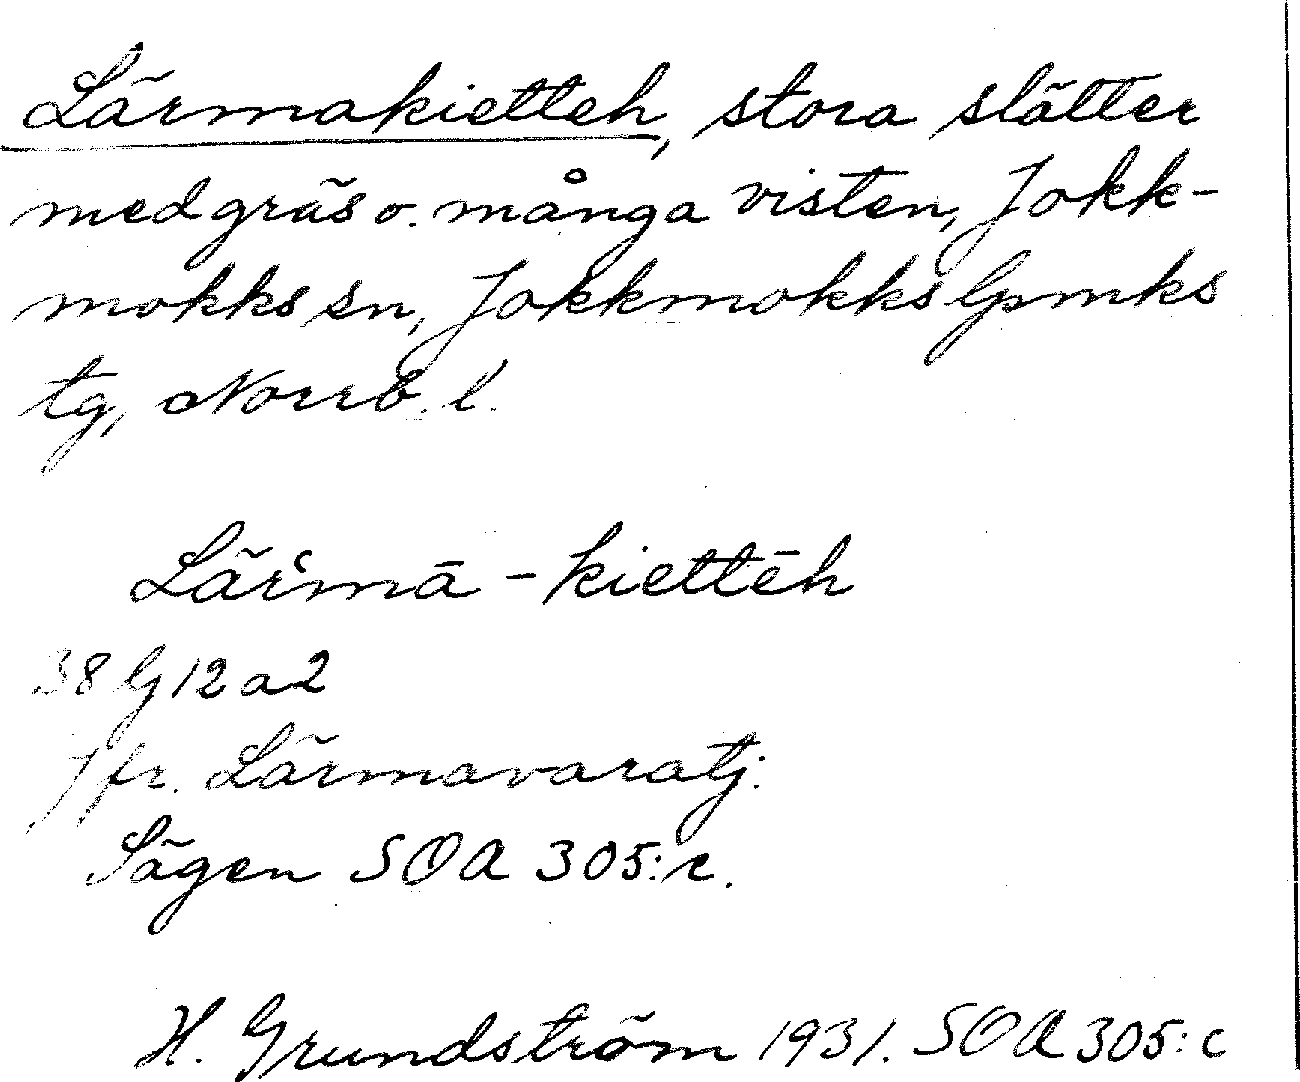 Lärmakietteh, stora slätter
med gräs o. många visten, Jokk-
mokks sn, Jokkmokks lpmks
tg, Norrb. l.
Lär̔mā - kiettēh
38 G 12 a 2
Jfr. Lärmavaratj.
Sägen SOA 305:c.
H. Grundström 1931. SOA 305:c